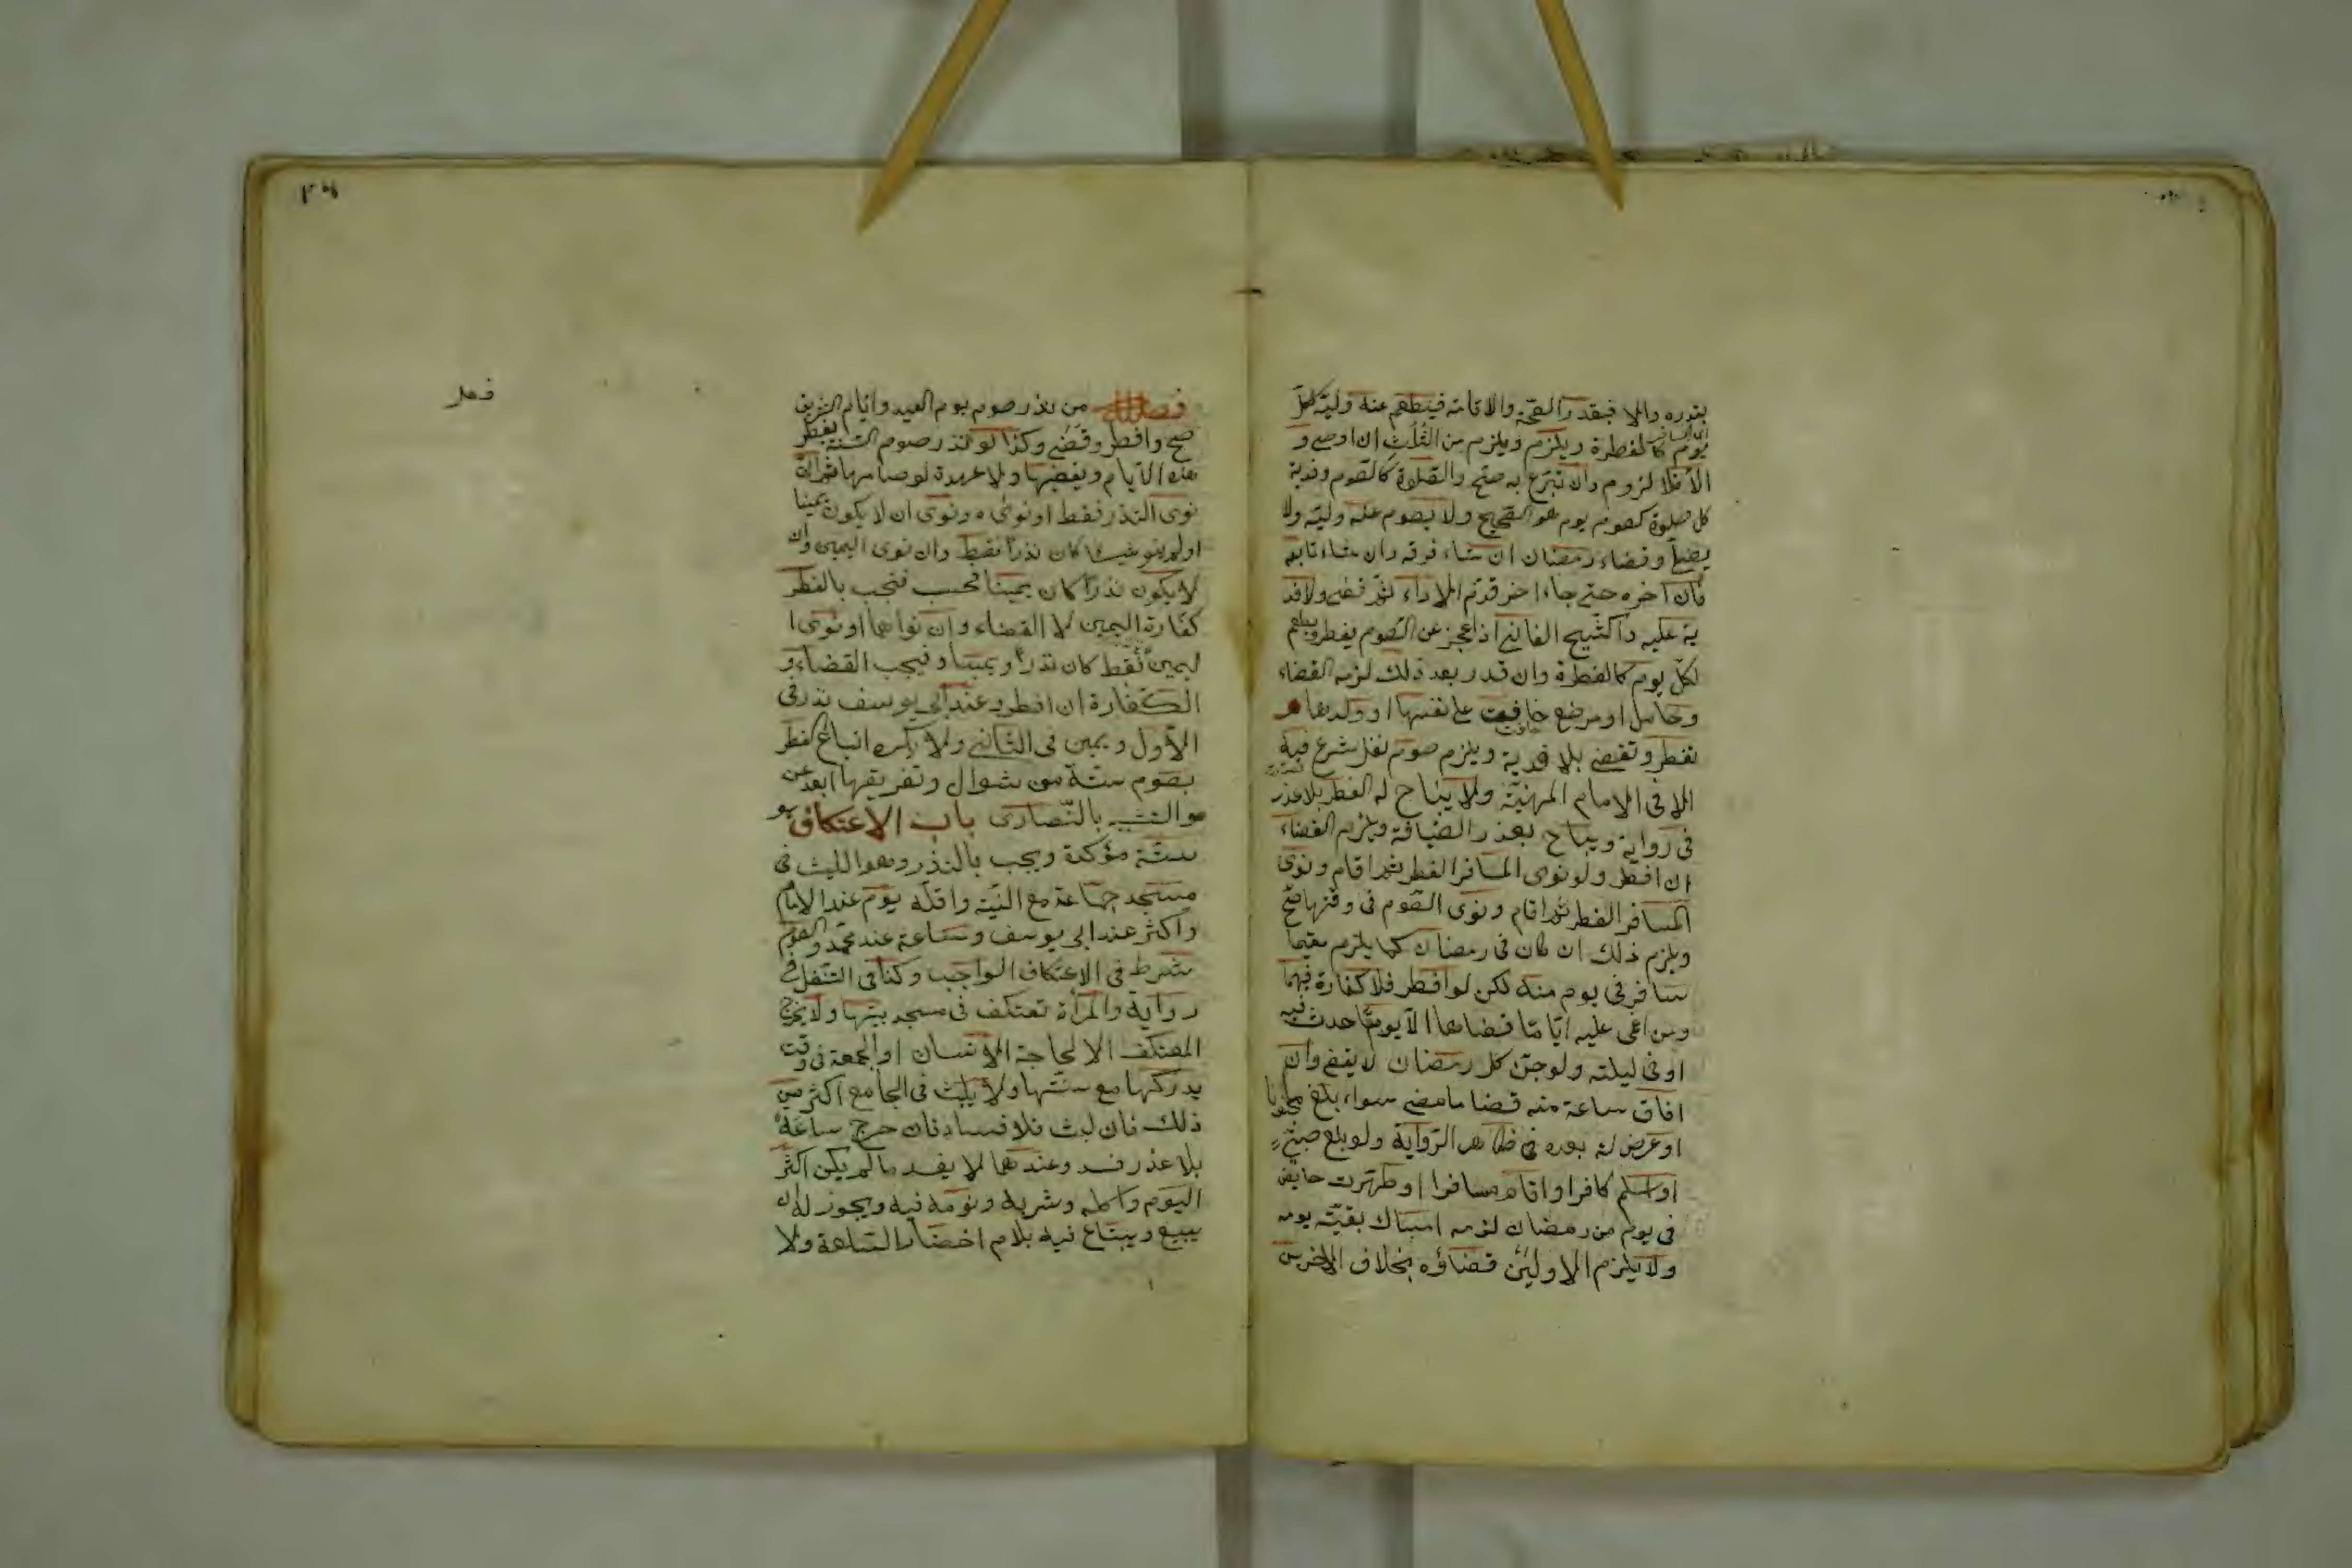 بقدره والا فبقدر الصحة والاقامة فيطعم عنه وليه لكل
يوم كالفطرة ويلزم ويلزم من الثلث ان اوصى و
الا فلا لزوم وان تبرع به صح والصلوة كالصوم وفدية
كل صلوة كصوم يوم هو الصحيح ولا يصوم عنه وليه ولا
يصلى وقضاء رمضان ان شاء فرقه وان شاء تابعه
فان اخره حتى جاء اخر قدم الاداء ثم قضى ولا فد
ية عليه والشيخ الفانى اذا عجز عن الصوم يفطر ويطعم
لكل يوم كالفطرة وان قدر بعد ذلك لزمه القضاء
وحامل او مرضع خافت على نفسها او ولدها
تفطر وتقضى بلا فدية ويلزم صوم نفل شرع فيه
الا فى الايام المنهية ولا يباح له الفطر بلا عذر
فى رواية ويباح بعذر الضيافة ويلزم القضاء
ان افطر ولو نوى المسافر الفطر ثم اقام ونوى
المسافر الفطر ثم اقام ونوى الصوم فى وقتها صح
ويلزم ذلك ان كان فى رمضان كما يلزم مقيما
سافر فى يوم منه لكن لو افطر فلا كفارة فيهما
ومن اغمى عليه اياما قضاها الا يوما حدث فيه
او فى ليلته ولو جن كل رمضان لا يقضى وان
افاق ساعة منه قضا ما مضى سواء بلغ مجنونا
او عرض له بعده فى ظاهر الرواية ولو بلغ صبى
او اسلم كافر او اقام مسافر او طهرت حايض
فى يوم من رمضان لزمه امساك بقية يومه
ولا يلزم الاولين قضاؤه بخلاف الاخرين
فصل
فصل من نذر صوم يوم العيد وايام التشريق
صح وافطر وقضى وكذا لو نذر صوم السنة يفطر
هذه الايام ويقضيها ولا عهدة لو صامها ثم ان
نوى النذر فقط او نواه ونوى ان لا يكون يمينا
او لم ينو شيئا كان نذرا فقط وان نوى اليمين وان
لا يكون نذرا كان يمينا فحسب فتجب بالفطر
كفارة اليمين لا القضاء وان نواهما او نوى ا
ليمين فقط كان نذرا ويمينا فيجب القضاء و
الكفارة ان افطر وعند ابى يوسف نذر فى
الاول ويمين فى الثانى ولا يكره اتباع الفطر
بصوم ستة من شوال وتفريقها ابعد عن
والتشبه بالنصارى باب الاعتكاف هو
سنة مؤكدة ويجب بالنذر وهو اللبث فى
مسجد جماعة مع النية واقله يوم عند الامام
واكثر عند ابى يوسف وساعة عند محمد والصوم
شرط فى الاعتكاف الواجب وكذا فى النفل فى
رواية والمرأة تعتكف فى مسجد بيتها ولا يخرج
المعتكف الا لحاجة الانسان او الجمعة فى وقت
يدركها مع سنتها ولا يلبث فى الجامع اكثر من
ذلك فان لبث فلا فساد فان خرج ساعة
بلا عذر فسد وعندهما لا يفسد ما لم يكن اكثر
اليوم واكله وشربه ونومه فيه ويجوز له ان
يبيع ويبتاع فيه بلا احضار السلعة ولا